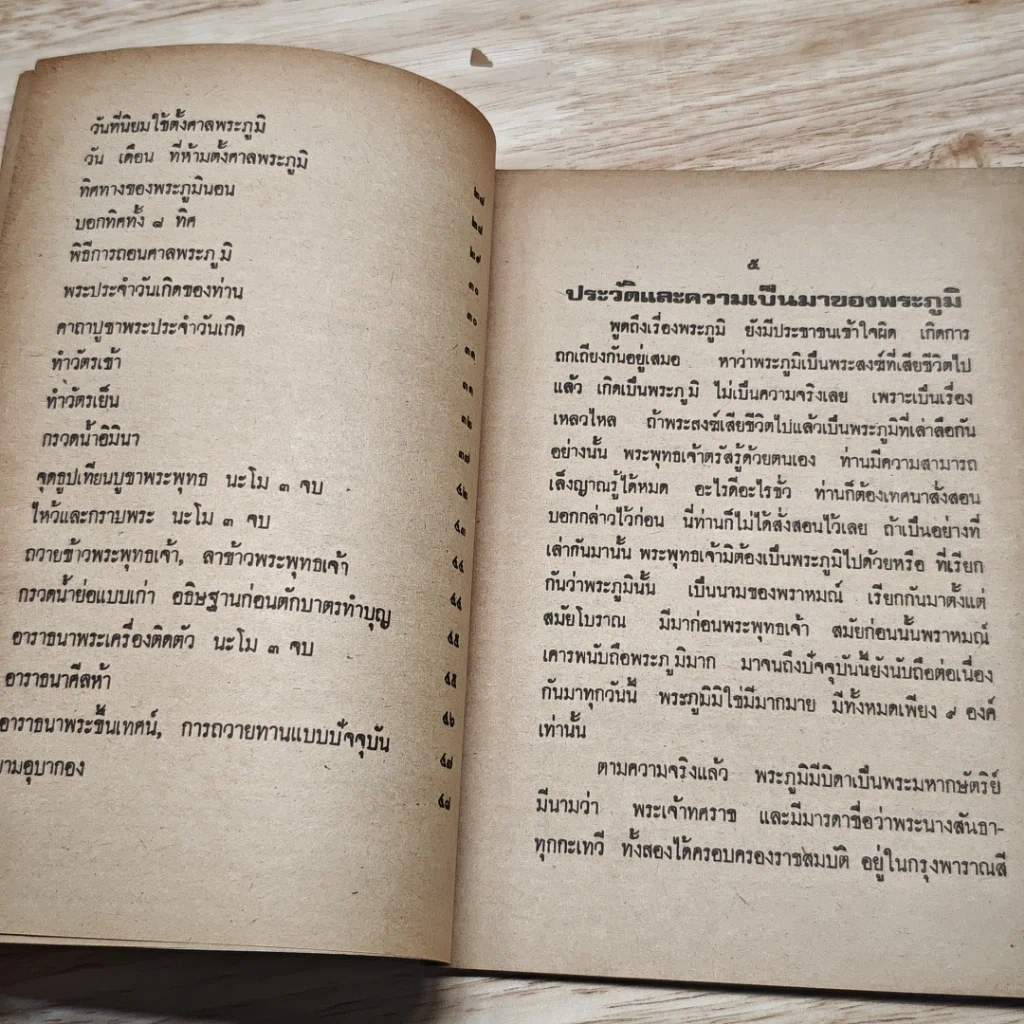 วันที่นิยมใช้ตั้งศาลพระภูมิ
วัน เดือน ที่ห้ามตั้งศาลพระภูมิ
ทิศทางของพระภูมินอน ๒๘
บอกทิศทั้ง ๘ ทิศ ๒๘
พิธีการถอนศาลพระภูมิ ๒๙
พระประจำวันเกิดของท่าน ๓๐
คาถาบูชาพระประจำวันเกิด ๓๐
ทำวัตรเช้า ๓๑
ทำวัตรเย็น ๓๑
กรวดน้ำอิมินา ๓๒
จุดธูปเทียนบูชาพระพุทธ นะโม ๓ จบ ๓๗
ไหว้และกราบพระ นะโม ๓ จบ ๔๒
ถวายข้าวพระพุทธเจ้า, ลาข้าวพระพุทธเจ้า ๔๓
กรวดน้ำย่อแบบเก่า อธิษฐานก่อนตักบาตรทำบุญ ๔๔
อาราธนาพระเครื่องติดตัว นะโม ๓ จบ ๔๔
อาราธนาศีลห้า ๔๕
อาราธนาพระขึ้นเทศน์, การถวายทานแบบปัจจุบัน ๔๕
ยามอุบากอง ๔๖
๔๗
๔๘
๕
ประวัติและความเป็นมาของพระภูมิ
พูดถึงเรื่องพระภูมิ ยังมีประชาชนเข้าใจผิด เกิดการ
ถกเถียงกันอยู่เสมอ หาว่าพระภูมิเป็นพระสงฆ์ที่เสียชีวิตไป
แล้ว เกิดเป็นพระภูมิ ไม่เป็นความจริงเลย เพราะเป็นเรื่อง
เหลวไหล ถ้าพระสงฆ์เสียชีวิตไปแล้วเป็นพระภูมิที่เล่าลือกัน
อย่างนั้น พระพุทธเจ้าตรัสรู้ด้วยตนเอง ท่านมีความสามารถ
เล็งญาณรู้ได้หมด อะไรดีอะไรชั่ว ท่านก็ต้องเทศนาสั่งสอน
บอกกล่าวไว้ก่อน นี่ท่านก็ไม่ได้สั่งสอนไว้เลย ถ้าเป็นอย่างที่
เล่ากันมานั้น พระพุทธเจ้ามิต้องเป็นพระภูมิไปด้วยหรือ ที่เรียก
กันว่าพระภูมินั้น เป็นนามของพราหมณ์ เรียกกันมาตั้งแต่
สมัยโบราณ มีมาก่อนพระพุทธเจ้า สมัยก่อนนั้นพราหมณ์
เคารพนับถือพระภูมิมาก มาจนถึงปัจจุบันนี้ยังนับถือต่อเนื่อง
กันมาทุกวันนี้ พระภูมิมิใช่มีมากมาย มีทั้งหมดเพียง ๙ องค์
เท่านั้น
ตามความจริงแล้ว พระภูมิมีบิดาเป็นพระมหากษัตริย์
มีนามว่า พระเจ้าทศราช และมีมารดาชื่อว่าพระนางสันธา-
ทุกกะเทวี ทั้งสองได้ครอบครองราชสมบัติ อยู่ในกรุงพาราณสี